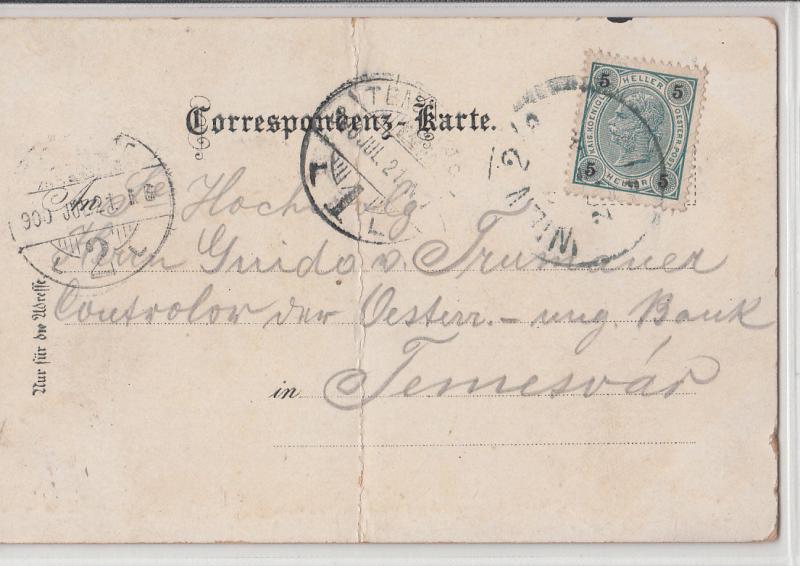 Correspondenz-Karte.
5 HELLER 5
KAIS. KOENIGL. OESTERR. POST
5 HELLER 5
WIEN
JUL. 21
2
An Sr Hochwolg
Herrn Guido v. Trumauer
Controlor der Oesterr. - ung. Bank
in Temesvár
Nur für die Adresse